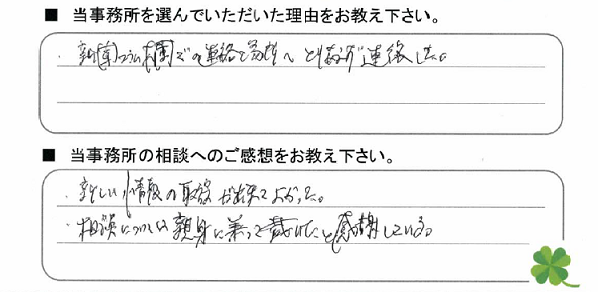 ■ 当事務所を選んでいただいた理由をお教え下さい。
・新聞コラム欄での連絡
連絡した。
■ 当事務所の相談へのご感想をお教え下さい。
・新しい情報の取得が出来てよかった。
・相談について親身に乗って裁けたと感謝している。